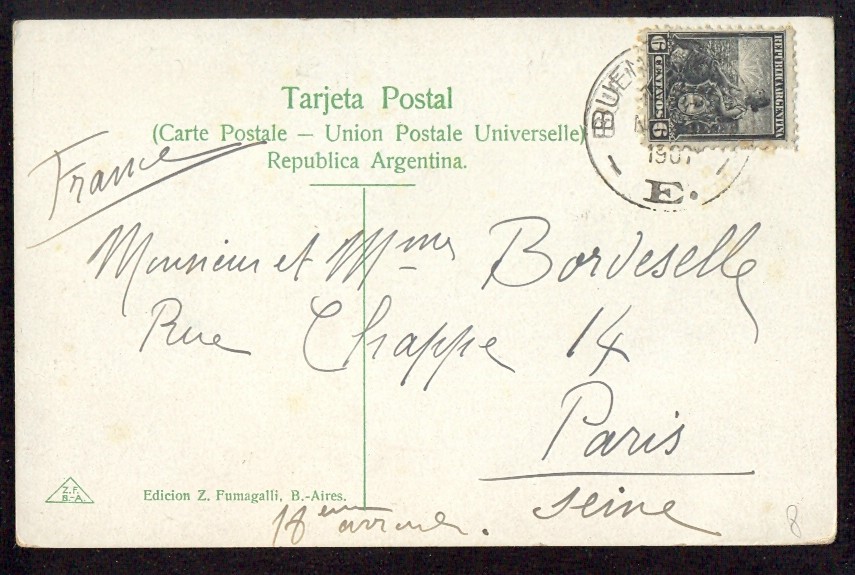 Tarjeta Postal
(Carte Postale — Union Postale Universelle)
Republica Argentina.
REPUBLICA ARGENTINA
6 CENTAVOS 6
BUEN
1907
E.
France
Monsieur et Mme Bordeselle
Rue Chappe 14
Paris
Seine
18eme
Z.F.
B-A.
Edicion Z. Fumagalli, B.-Aires.
8